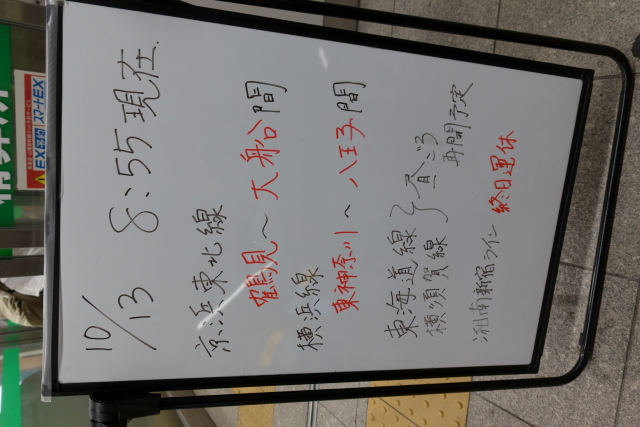 10/13 8:55現在.
京浜東北線
鶴見〜大船間
横浜線
東神奈川〜八王子間
東海道線
横須賀線
昼ごろ
再開予定
湘南新宿ライン 終日運休
EX予約 スマートEX